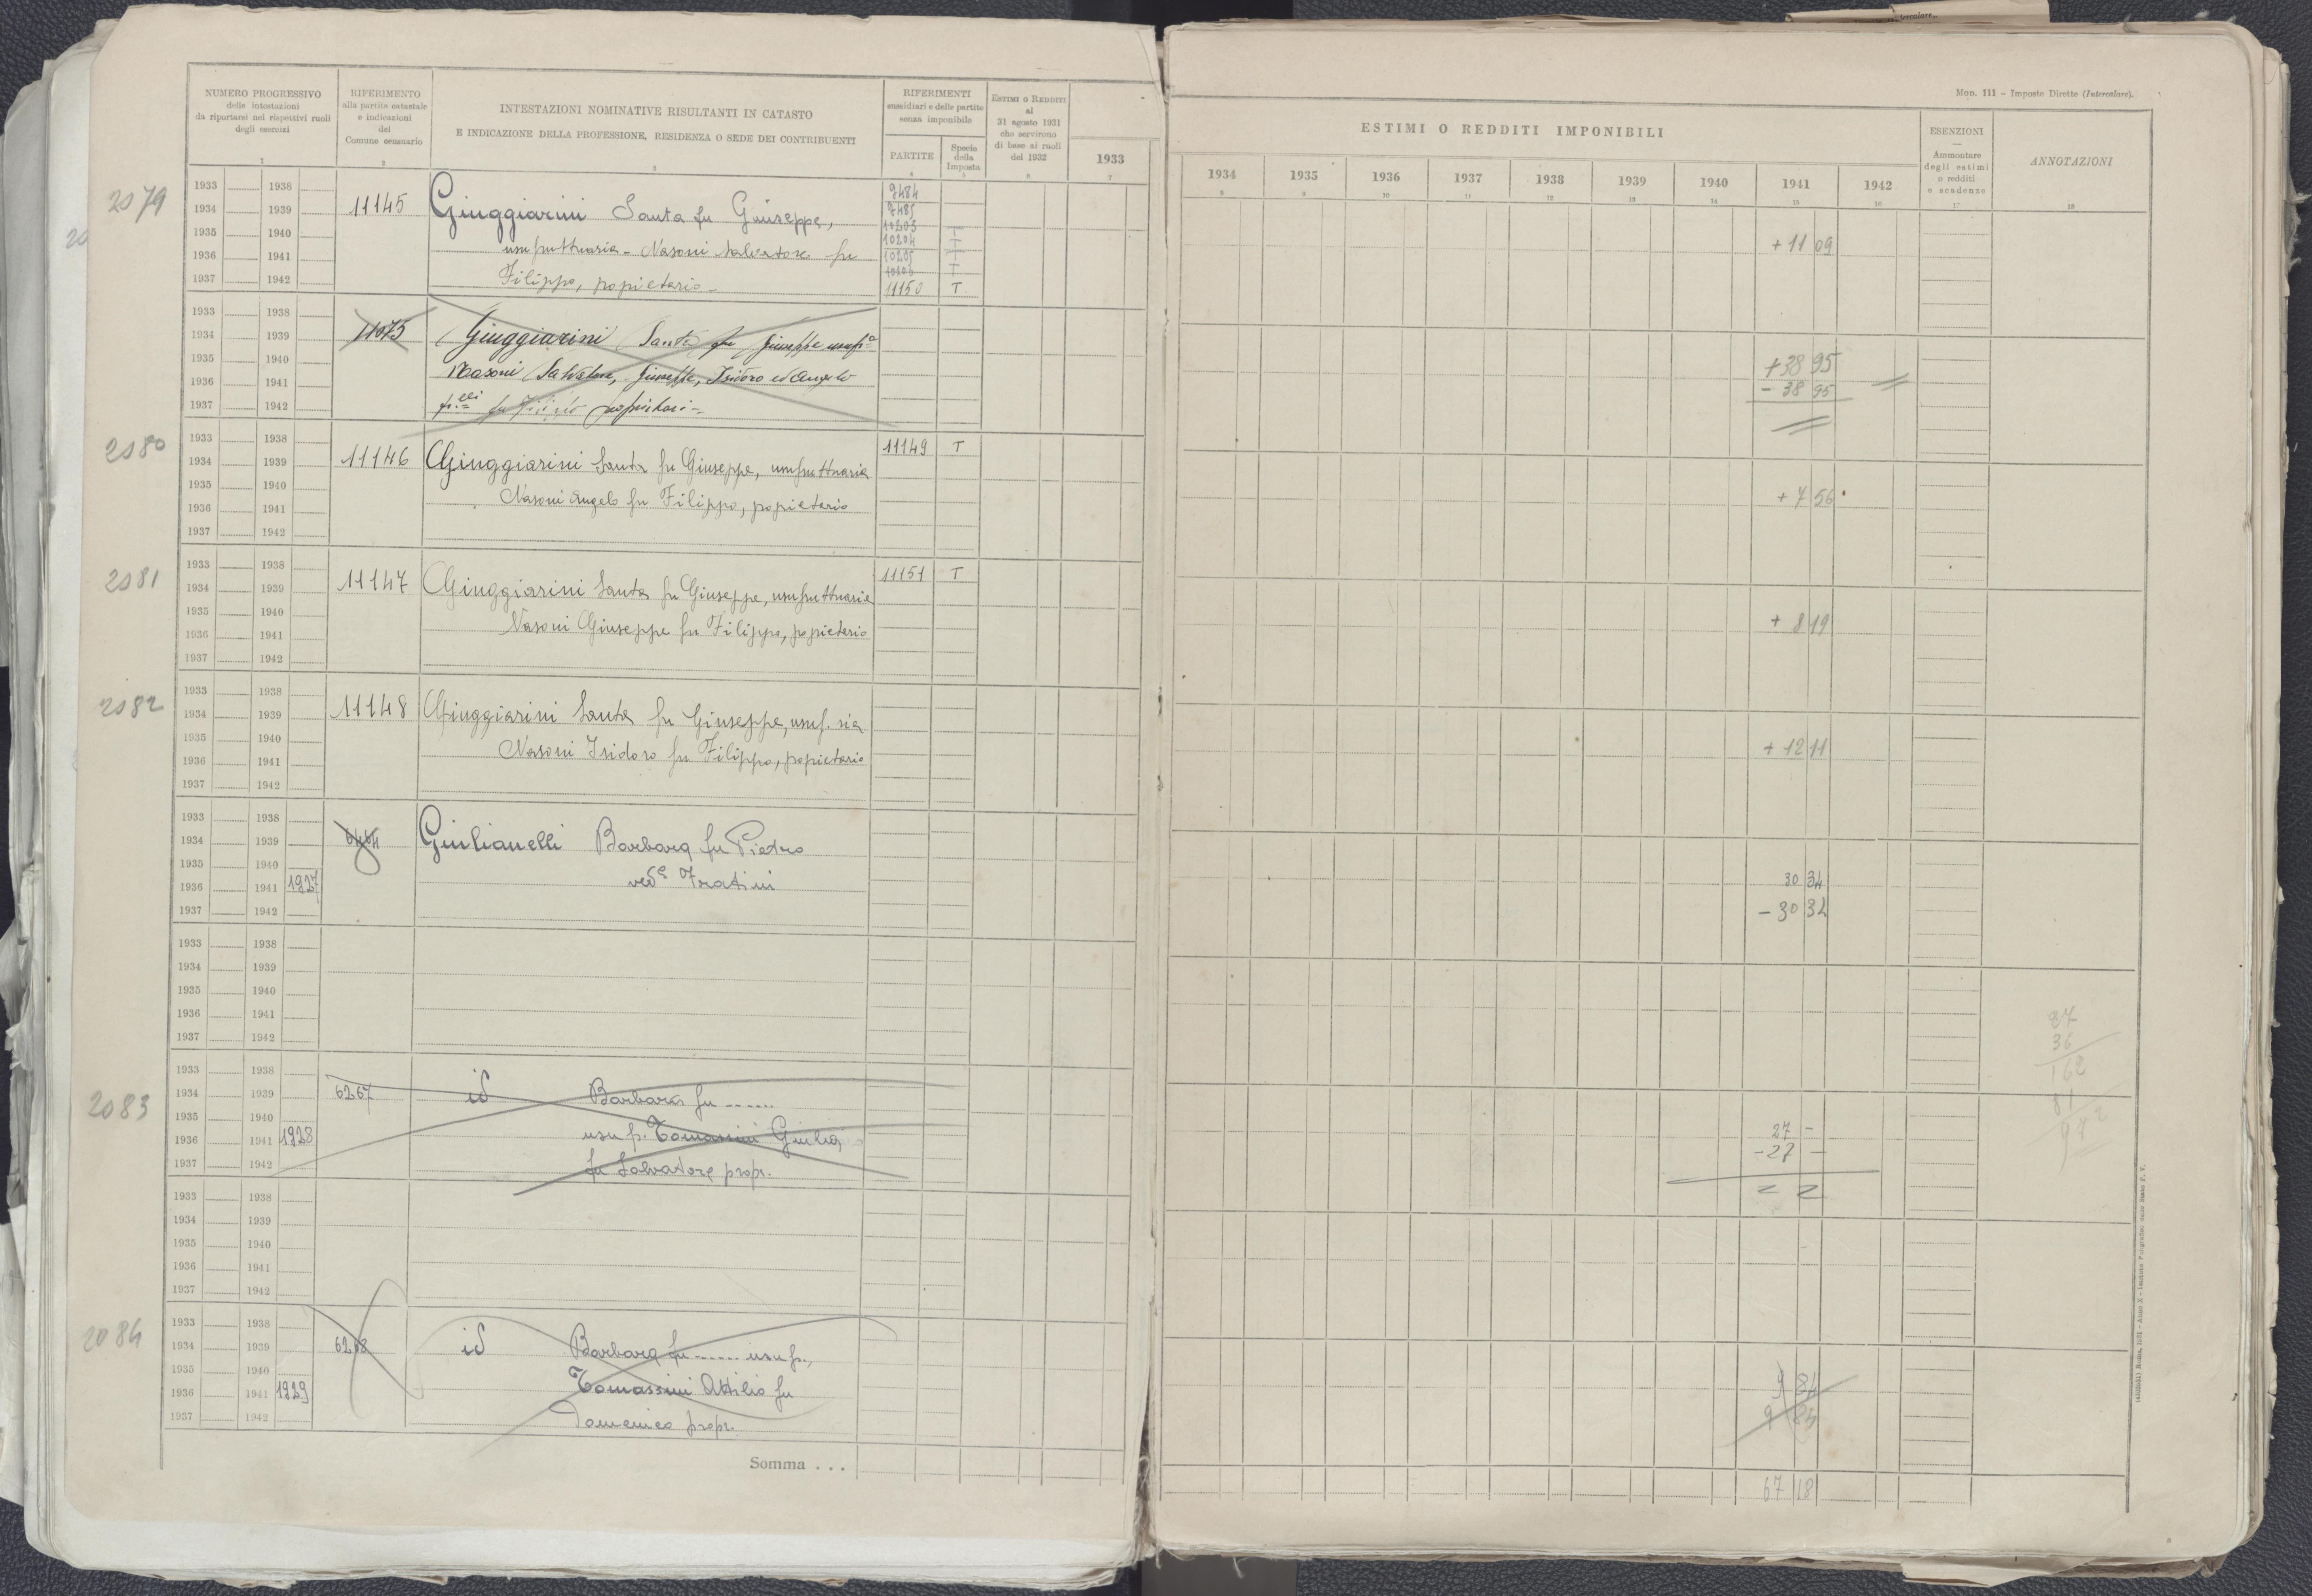 NUMERO PROGRESSIVO
delle intestazioni
da riportarsi nei rispettivi ruoli
degli esercizi
1
RIFERIMENTO
alla partita catastale
e indicazioni
del
Comune censuario
2
INTESTAZIONI NOMINATIVE RISULTANTI IN CATASTO
E INDICAZIONE DELLA PROFESSIONE, RESIDENZA O SEDE DEI CONTRIBUENTI
3
RIFERIMENTI
sussidiari e delle partite
senza imponibile
PARTITE
4
Specie
della
Imposta
5
ESTIMI O REDDITI
al
31 agosto 1931
che servirono
di base ai ruoli
del 1932
6
1933
7
Mod. 111 - Imposte Dirette (Intercalare).
ESTIMI O REDDITI IMPONIBILI
1934 1935 1936 1937 1938 1939 1940 1941 1942
8 9 10 11 12 13 14 15 16
ESENZIONI
Ammontare
degli estimi
o redditi
e scadenze
17
ANNOTAZIONI
18
2079
1933 1938
1934 1939
1935 1940
1936 1941
1937 1942
11145 Giuggiarini Santa fu Giuseppe,
usufruttuaria - Nasoni Salvatore fu
Filippo, propietario -
7485
10203
10204 T
10205 T
11150 T
+ 11 09
1933 1938
1934 1939
1935 1940
1936 1941
1937 1942
11075 Giuggiarini Santa fu Giuseppe usufª
Nasoni Salvatore, Giuseppe, Isidoro ed Angelo
+ 38 95
- 38 95
2080
1933 1938
1934 1939
1935 1940
1936 1941
1937 1942
11146 Giuggiarini Santa fu Giuseppe, usufruttuaria
Nasoni Angelo fu Filippo, propietario
11149 T
+ 7 56
2081
1933 1938
1934 1939
1935 1940
1936 1941
1937 1942
11147 Giuggiarini Santa fu Giuseppe, usufruttuaria
Nasoni Giuseppe fu Filippo, propietario
11151 T
+ 8 19
2082
1933 1938
1934 1939
1935 1940
1936 1941
1937 1942
11148 Giuggiarini Santa fu Giuseppe, usuf. ria
Nasoni Isidoro fu Filippo, propietario
+ 12 11
1933 1938
1934 1939
1935 1940
1936 1941 1927
1937 1942
Giulianelli Barbara fu Pietro
ved. Fratini
30 34
- 30 34
1933 1938
1934 1939
1935 1940
1936 1941
1937 1942
87
36
162
81
2083
1933 1938
1934 1939
1935 1940
1936 1941 1928
1937 1942
6267 id Barbara fu ......
usuf. Tomassini Giulia
fu Salvatore propr.
27 -
- 27 -
1933 1938
1934 1939
1935 1940
1936 1941
1937 1942
2084
1933 1938
1934 1939
1935 1940
1936 1941 1929
1937 1942
6268 id Barbara fu ...... usuf.,
Tomassini Attilio fu
Domenico propr.
9 84
9 84
Somma . . .
67 18